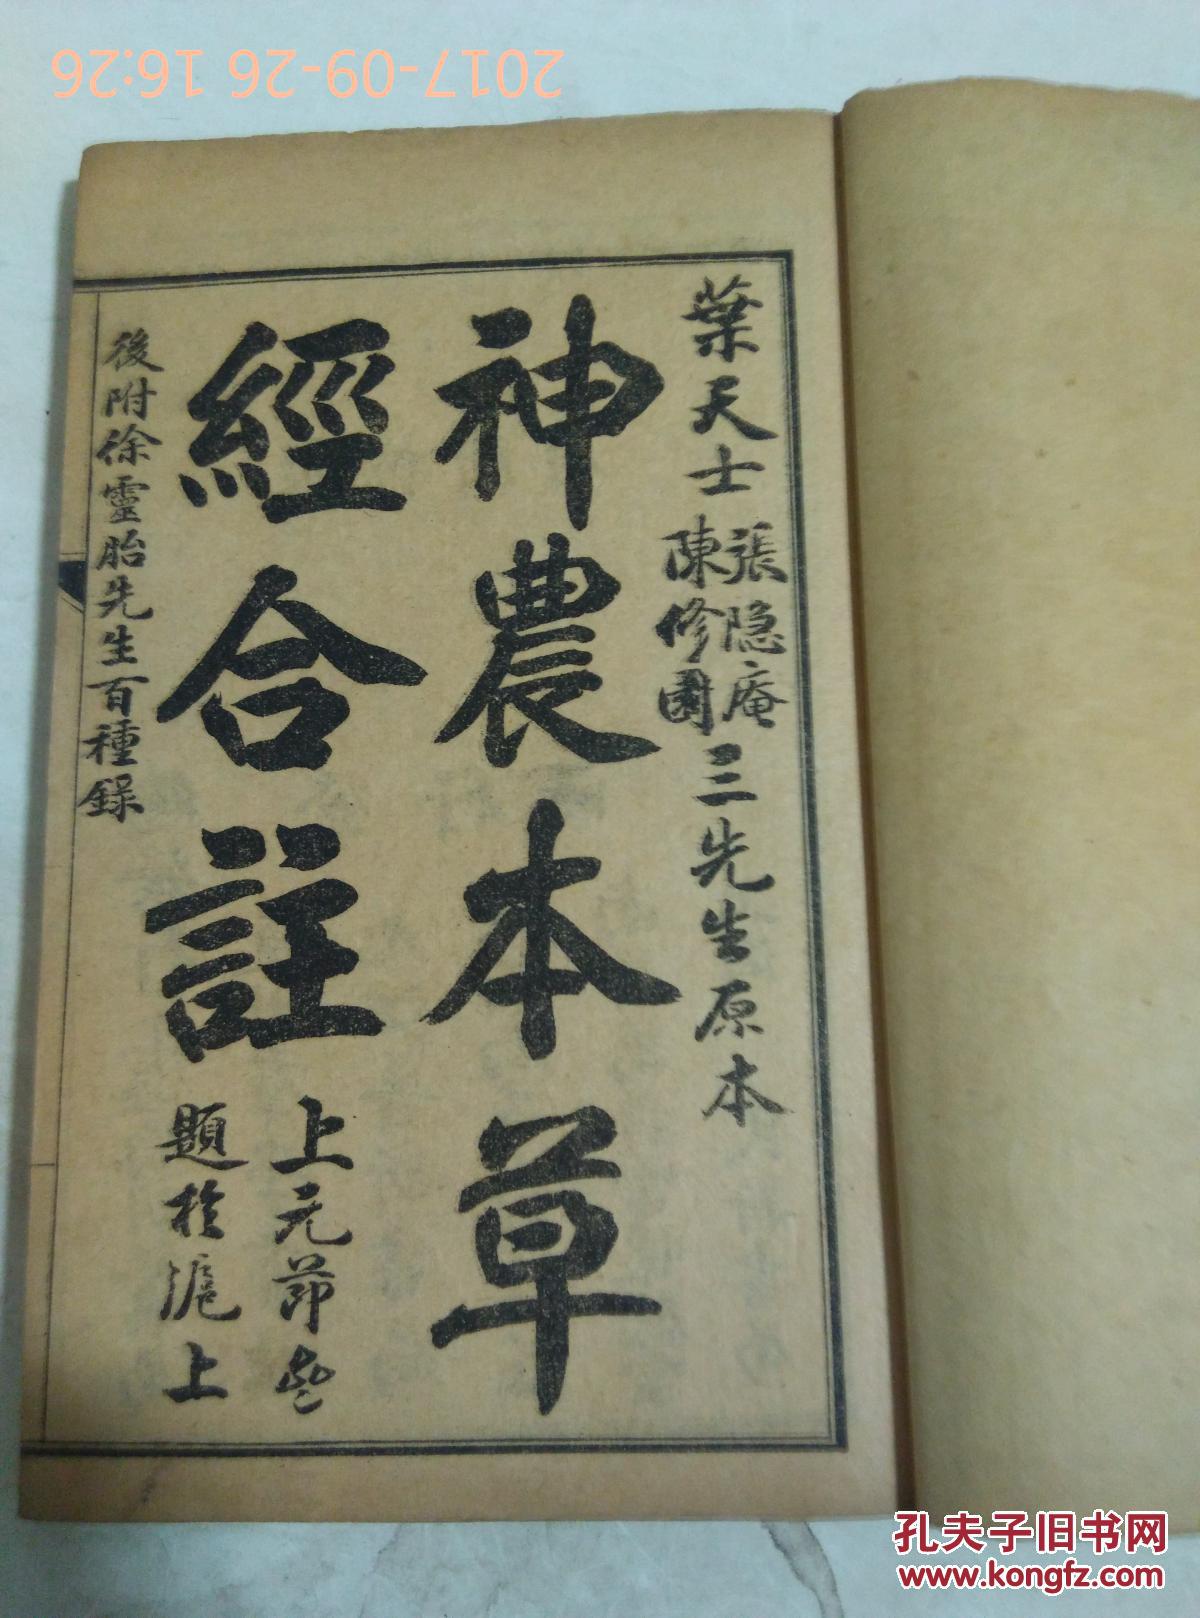 2017-09-26 16:26
葉天士張隐庵陳修園三先生原本
神農本草
經合註
上元節
題於滬上
後附徐靈胎先生百種錄
孔夫子旧书网
www.kongfz.com